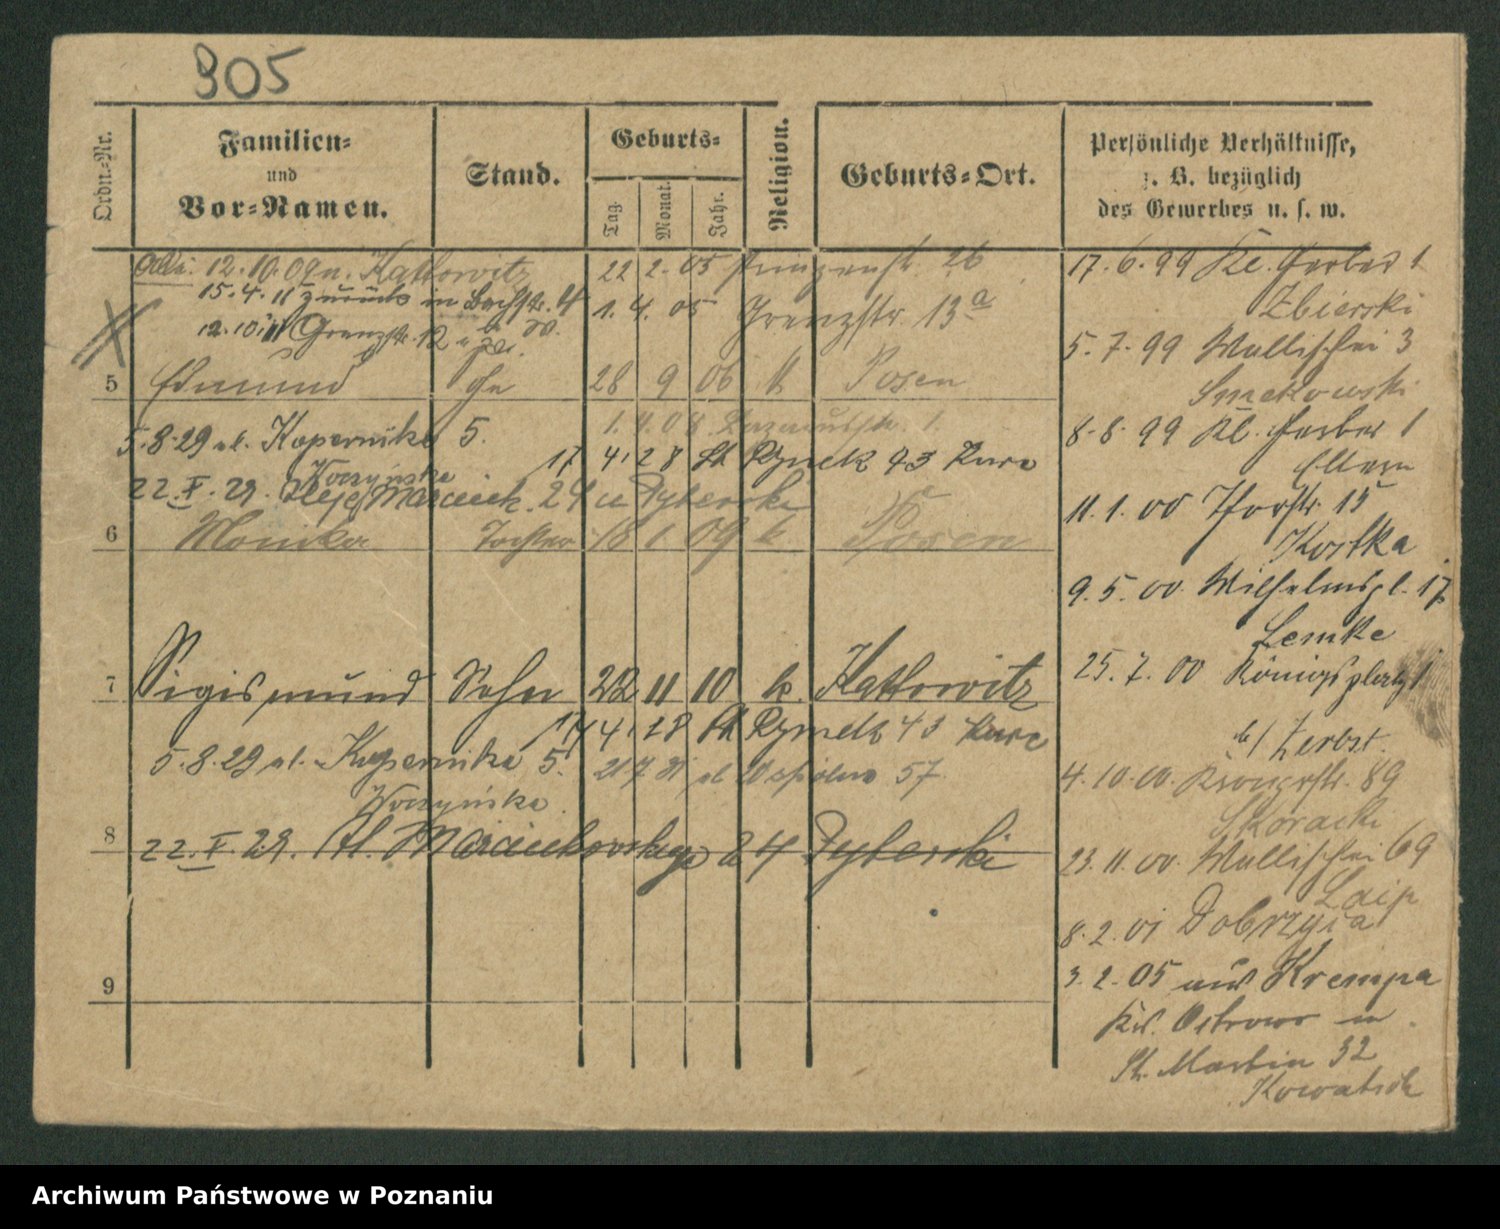 905
Ordn.-Nr.
Familien=
und
Vor=Namen.
Stand.
Geburts=
Tag.
Monat.
Jahr.
Religion.
Geburts=Ort.
Persönliche Verhältnisse,
z. B. bezüglich
des Gewerbes u. s. w.
12.10.09 n. Kattowitz
22 2. 05 Prinzenstr. 26
15.4.11 zurück in Bachstr. 4
1. 4. 05 Grenzstr. 13a
12.10.11 Grenzstr. 12
5 Edmund 28 9 06 k Posen
5.8.29 ul. Kopernika 5.
1. 4. 08
17 4. 28 St Rynek 43 Kurc
Woczyńska
22.X.29. 24 u Pyterski
6 Monika Tochter 18 1 09 k Posen
7 Sigismund Sohn 22 11 10 k. Kattowitz
17 4. 28 St Rynek 43 Kurc
5.8.29 ul. Kopernika 5.
21 7 31 ul Wspólna 57
Woczyńska
8 22.X.29. Pl. Marcinkowskiego 24 Pyterski
9
17.6.99 Kl. Gerber 1
Zbierski
5.7.99 Wallischei 3
Smekowski
8.8.99 Kl. Gerber 1
Eltern
11.1.00 Thorstr. 15
Kostka
9.5.00 Wilhelmspl. 17
Lemke
25.7.00 Königsplatz 1
b/ Zerbst.
4.10.00 Kronprstr. 89
Skoracki
23.11.00 Wallischei 69
Laip
8.2.01 Dobrzyca
3.2.05 aus Krempa
Kr. Ostrowo in
St. Martin 32
Kowalsik
Archiwum Państwowe w Poznaniu